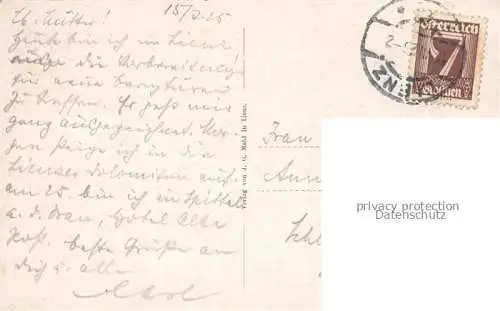 15/7.25
Lb. Mutter!
Heute bin ich in Lienz
die Vorbereitung
für neue Bergturen
zu treffen. Es geht mir
ganz ausgezeichnet. Mor-
gen steige ich in die
Lienzer Dolomiten auf.
am 25. bin ich in Spittal
a. d. Drau, Hotel Alte
Post. beste Grüße an
dich u. alle
Verlag von J. G. Mahl in Lienz.
Frau
Österreich
7
Groschen
NZ
privacy protection
Datenschutz